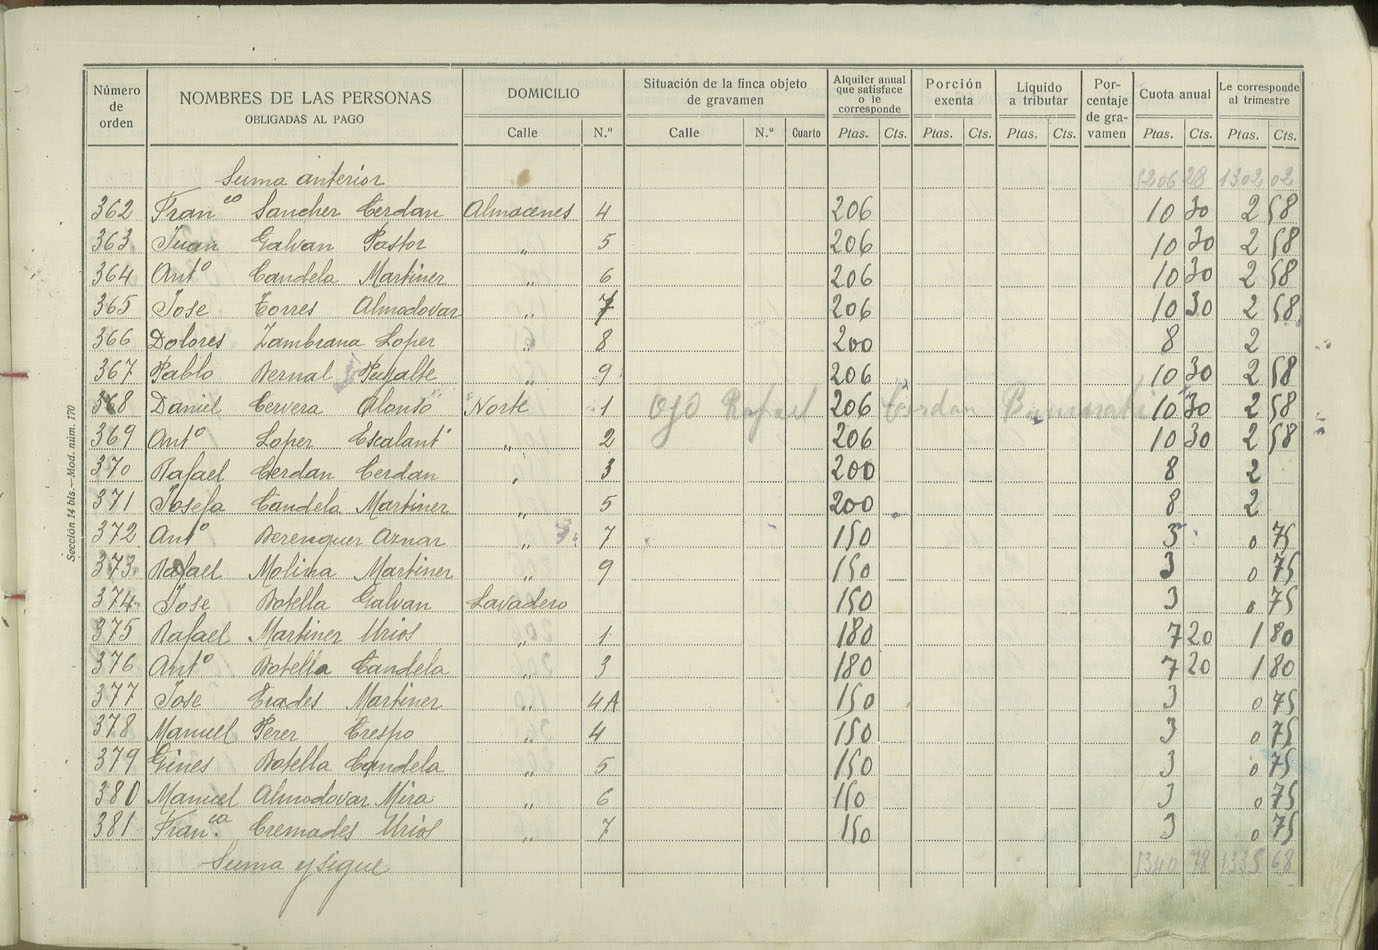 Sección 14 bis.—Mod. núm. 170
Número de orden NOMBRES DE LAS PERSONAS OBLIGADAS AL PAGO DOMICILIO Situación de la finca objeto de gravamen Alquiler anual que satisface o le corresponde Porción exenta Líquido a tributar Porcentaje de gravamen Cuota anual Le corresponde al trimestre
Calle N.º Calle N.º Cuarto Ptas. Cts. Ptas. Cts. Ptas. Cts. Ptas. Cts. Ptas. Cts.
Suma anterior 5206 28 1302 02
362 Fran co Sancher Cerdan Almacenes 4 206 10 30 2 58
363 Juan Galvan Pastor " 5 206 10 30 2 58
364 Antº Candela Martiner " 6 206 10 30 2 58
365 Jose Torres Almodovar " 7 206 10 30 2 58
366 Dolores Zambrana Loper " 8 200 8 2
367 Pablo Bernal Pujalte " 9 206 10 30 2 58
368 Daniel Cervera Alonso Norte 1 Ojo Rafael 206 Cerdan 10 30 2 58
369 Antº Loper Escalant " 2 206 10 30 2 58
370 Rafael Cerdan Cerdan " 3 200 8 2
371 Josefa Candela Martiner " 5 200 8 2
372 Antº Berenguer Aznar " 7 150 3 0 75
373 Rafael Molina Martiner " 9 150 3 0 75
374 Jose Botella Galvan Lavadero 150 3 0 75
375 Rafael Martiner Urios " 1 180 7 20 1 80
376 Antº Botella Candela " 3 180 7 20 1 80
377 Jose Martiner " 4A 150 3 0 75
378 Manuel Perer Crespo " 4 150 3 0 75
379 Gines Botella Candela " 5 150 3 0 75
380 Manuel Almodovar Mira " 6 150 3 0 75
381 Fran ca Cremades Urios " 7 150 3 0 75
Suma y sigue 5340 78 1335 68